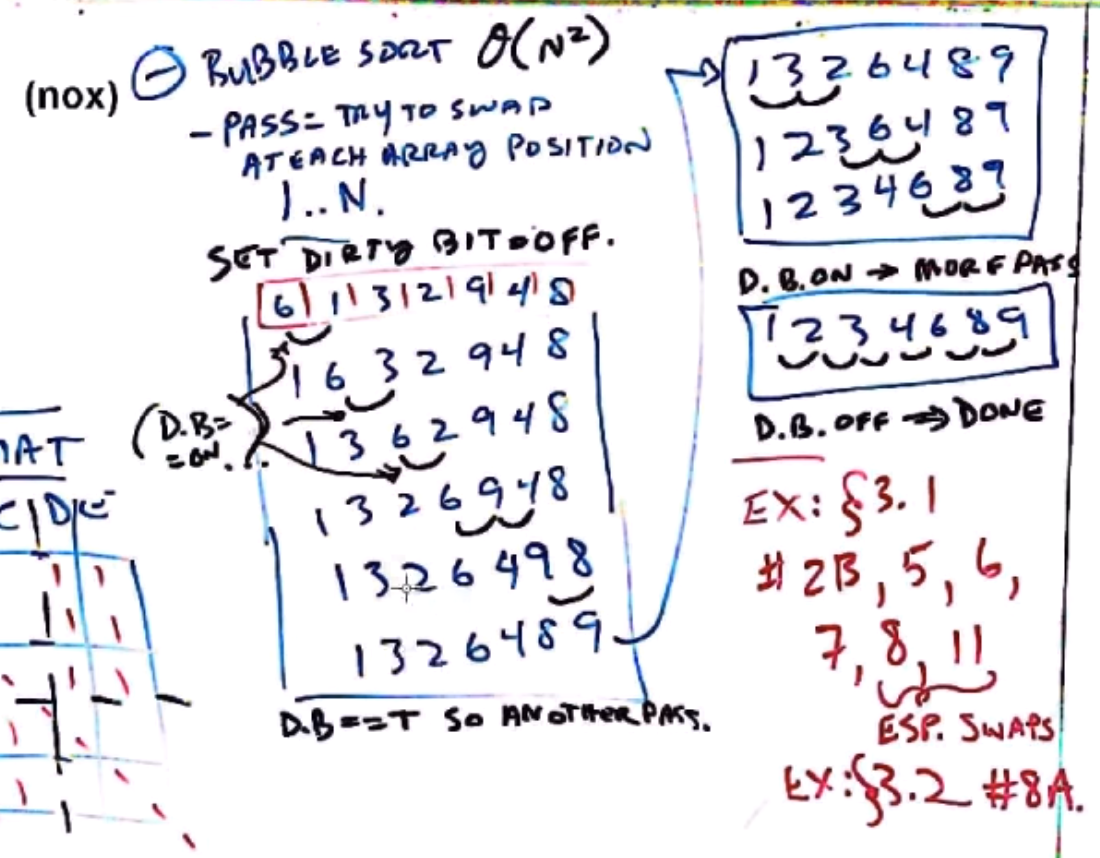 (nox) ⊖ BUBBLE SORT θ(N²)
- PASS = TRY TO SWAP
AT EACH ARRAY POSITION
1..N.
SET DIRTY BIT=OFF.
6|1|3|2|9|4|8
1 6 3 2 9 4 8
1 3 6 2 9 4 8
1 3 2 6 9 4 8
1 3 2 6 4 9 8
1 3 2 6 4 8 9
(D.B=
=ON...
D.B==T SO ANOTHER PASS.
C|D|E
1 3 2 6 4 8 9
1 2 3 6 4 8 9
1 2 3 4 6 8 9
D.B.ON → MORE PASS
1 2 3 4 6 8 9
D.B. OFF ⇒ DONE
EX: §3.1
# 2B, 5, 6,
7, 8, 11
ESP. SWAPS
EX:§3.2 #8A.